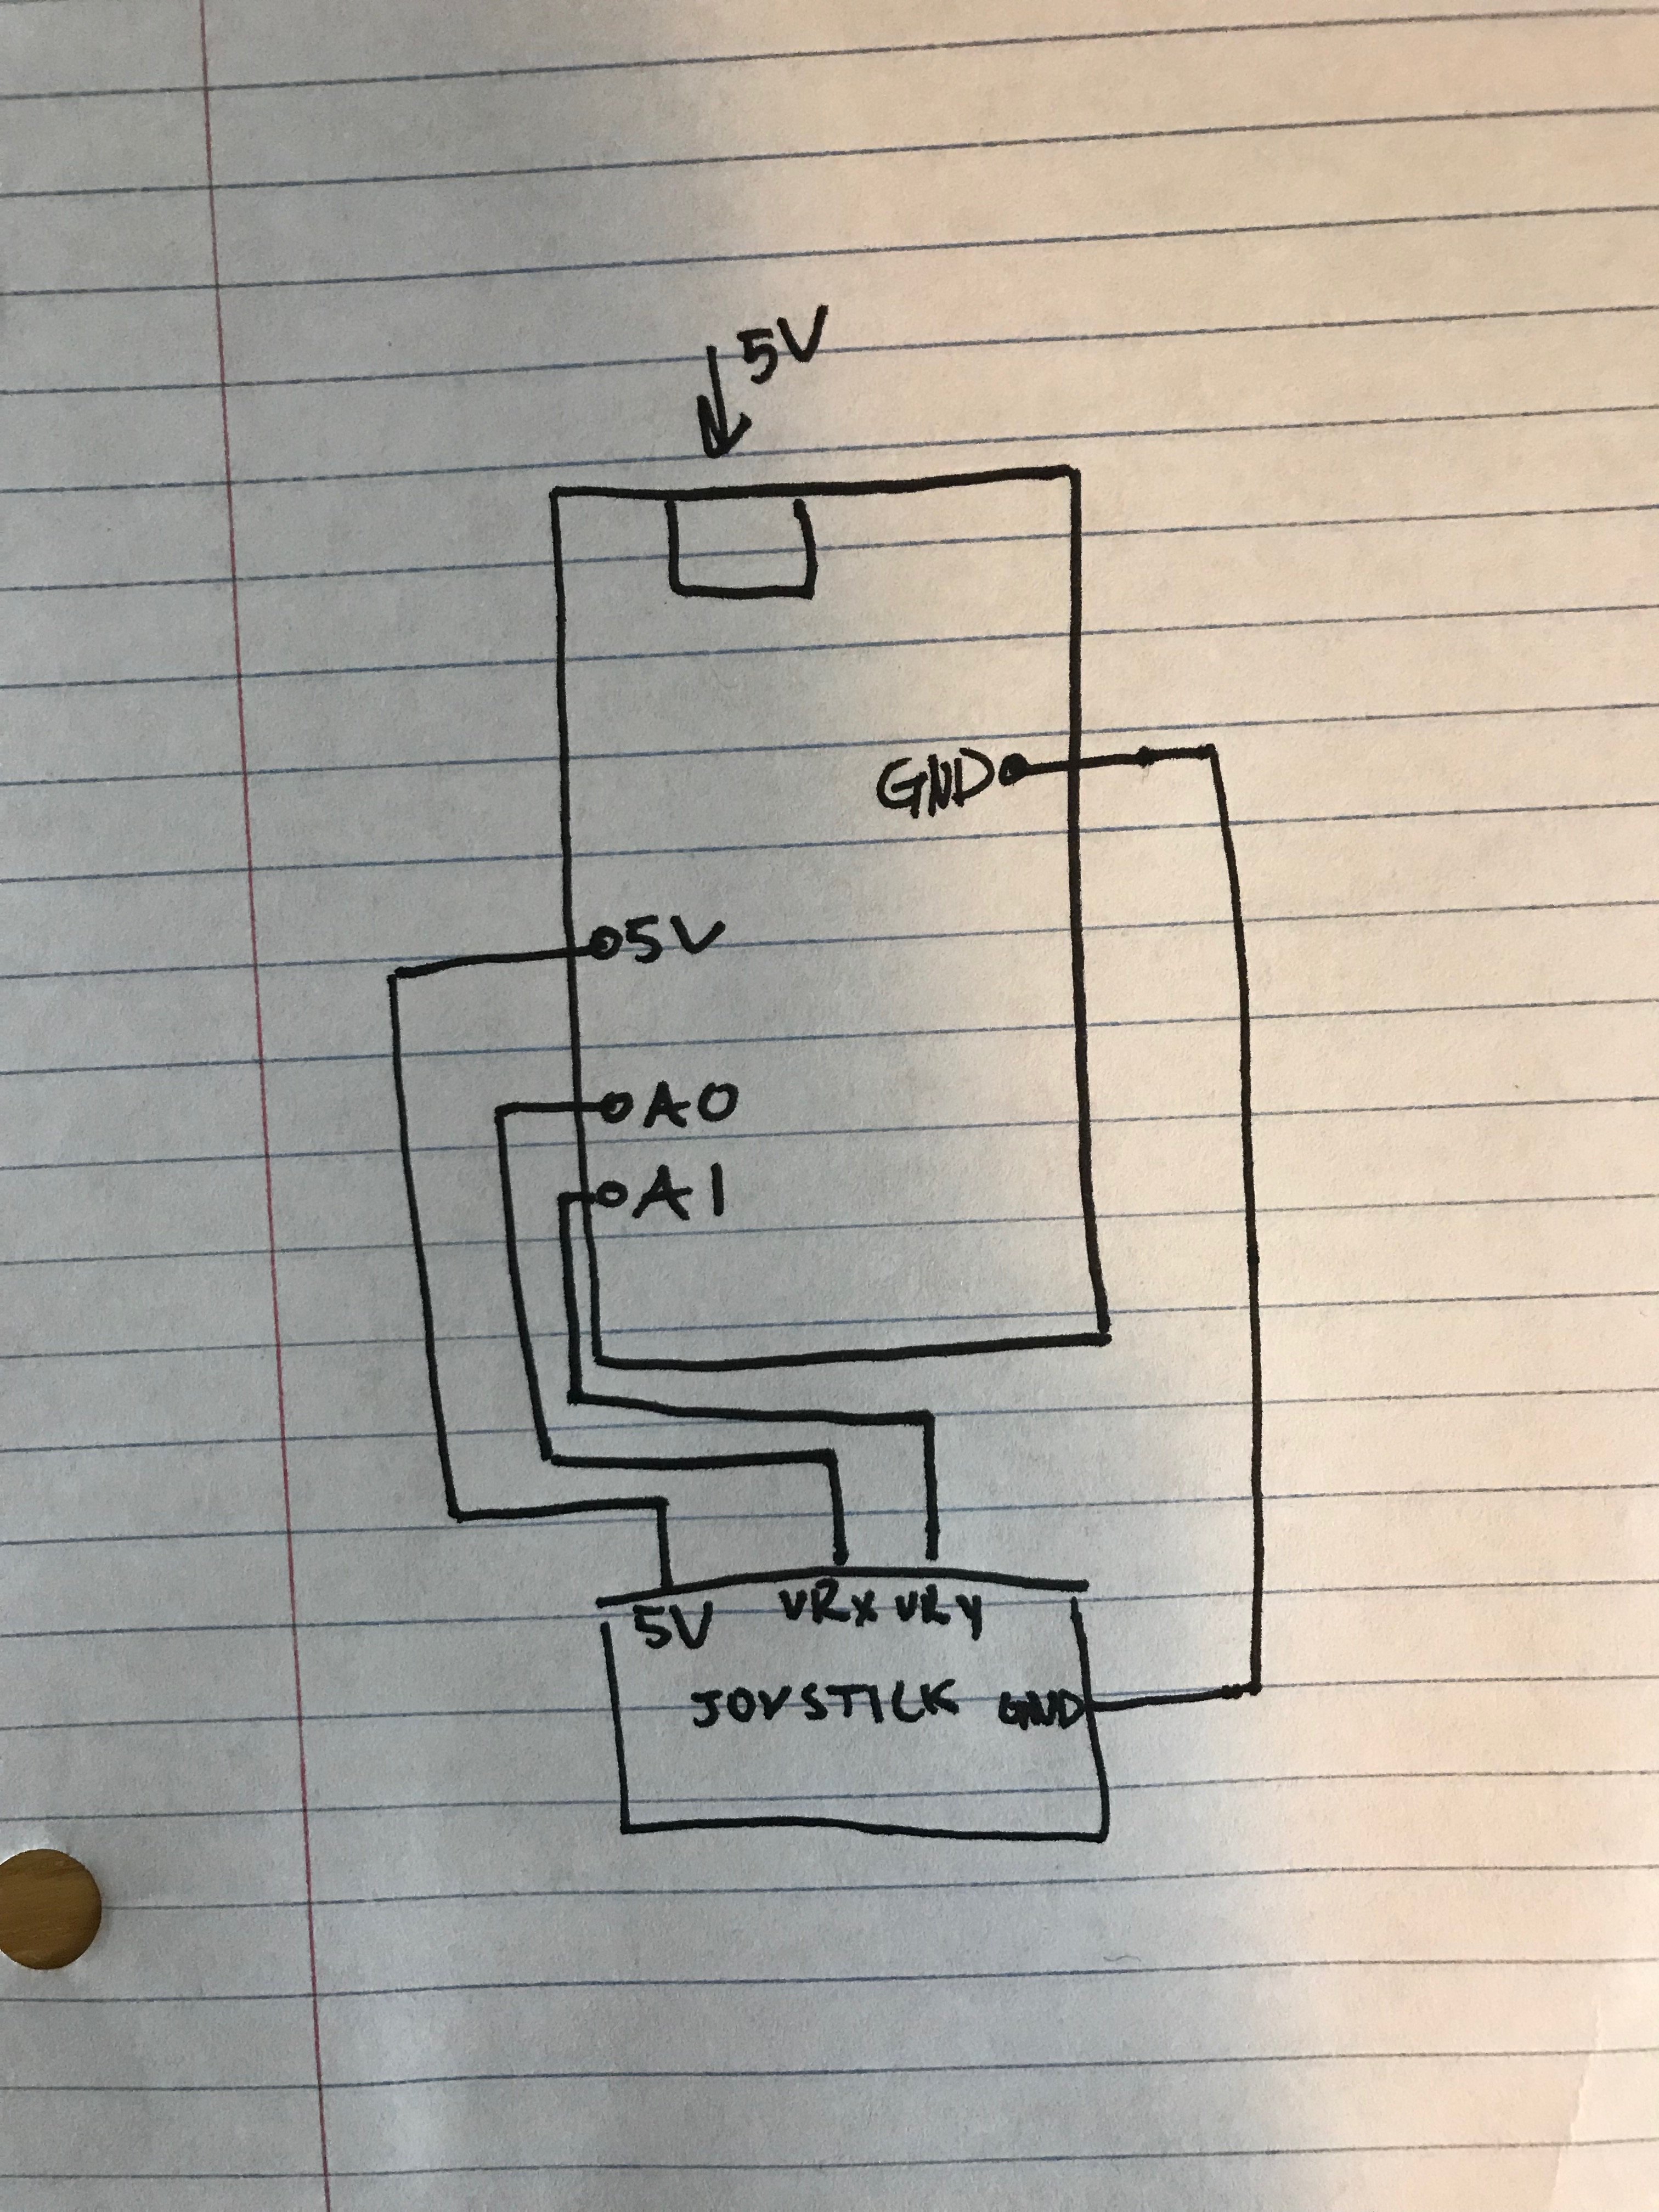 5V
GND
5V
A0
A1
5V VRx VRy
JOYSTICK GND